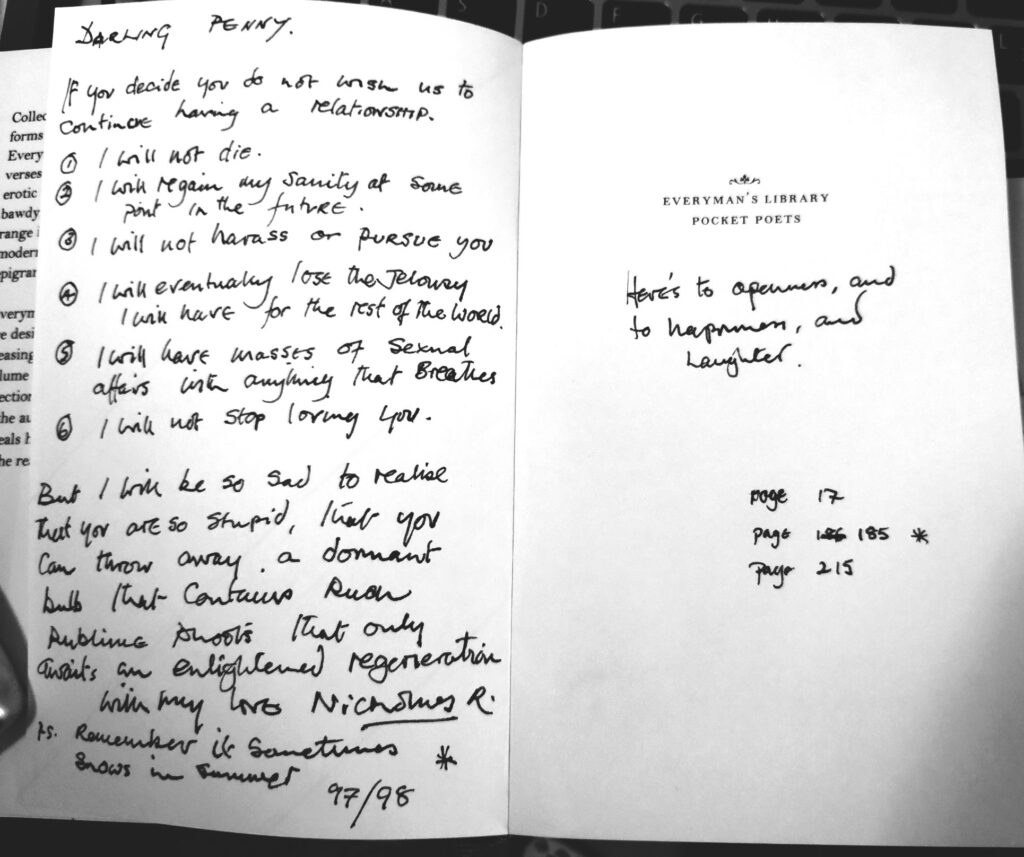 DARLING PENNY.
If you decide you do not wish us to
continue having a relationship.
① I will not die.
② I will regain my sanity at some
point in the future.
③ I will not harass or pursue you
④ I will eventually lose the jelousy
I will have for the rest of the world.
⑤ I will have masses of sexual
affairs with anything that Breathes
⑥ I will not stop loving you.
But I will be so sad to realise
that you are so stupid, that you
can throw away a dormant
bulb that contains such
sublime shoots that only
awaits an enlightened regeneration
with my love Nicholas R.
Ps. Remember it sometimes *
snows in summer
97/98
Collec
forms
Every
verses
erotic
bawdy
range i
modern
pigran
veryn
e desi
easing
lume
ection
the au
eals h
he re
EVERYMAN'S LIBRARY
POCKET POETS
Here's to openness, and
to happiness, and
laughter.
page 17
page 186 185 *
page 215
D
F
L